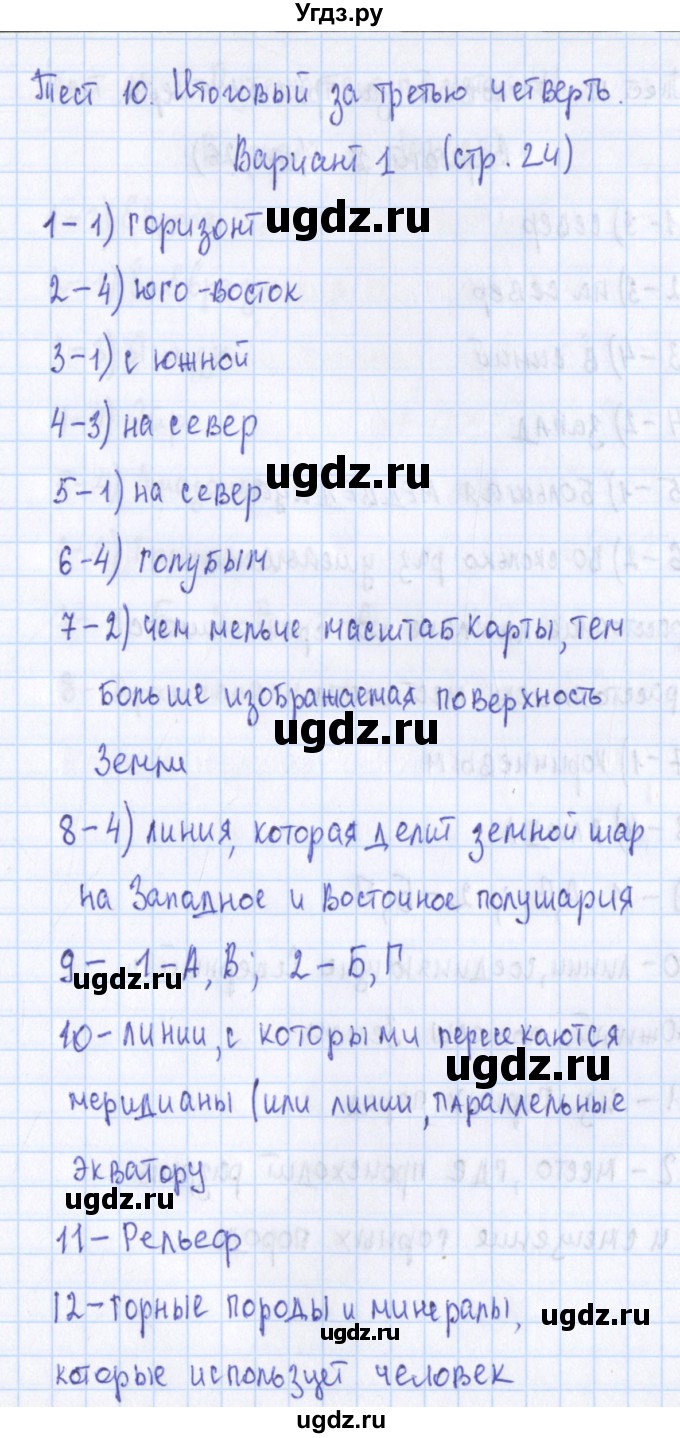 Угдз.ру
Тест 10. Итоговый за третью четверть.
Вариант 1 (стр. 24)
1-1) горизонт
ugdz.ru
2-4) юго-восток
3-1) с южной
4-3) на север
ugdz.ru
5-1) на север
6-4) голубым
7-2) чем мельче масштаб карты, тем
больше изображаемая поверхность
ugdz.ru
Земли
8-4) линия, которая делит земной шар
на Западное и Восточное полушария
9- 1-А, В; 2-Б, Г
ugdz.ru
10-линии, с которыми пересекаются
ugdz.ru
меридианы (или линии, параллельные
экватору
ugdz.ru
11-Рельеф
12-горные породы и минералы,
ugdz.ru
ugdz.ru
которые использует человек
ugdz.ru